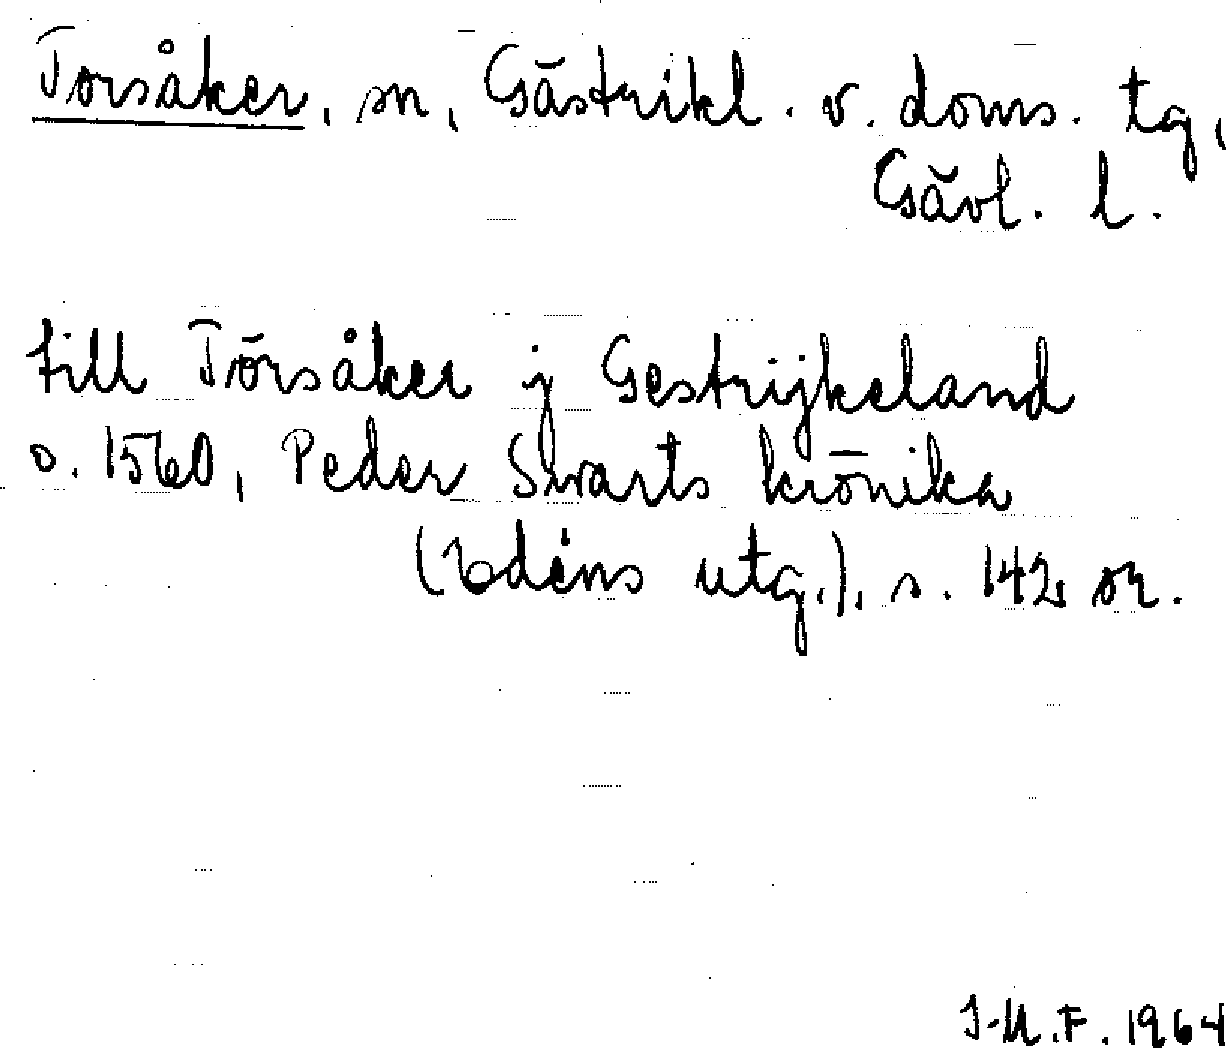 Torsåker, sn, Gästrikl. v. doms. tg,
Gävl. l.
till Törsåker j Gestrijkeland
o. 1560, Peder Swarts krönika
(Edéns utg.), s. 142 sr.
J-M.F. 1964